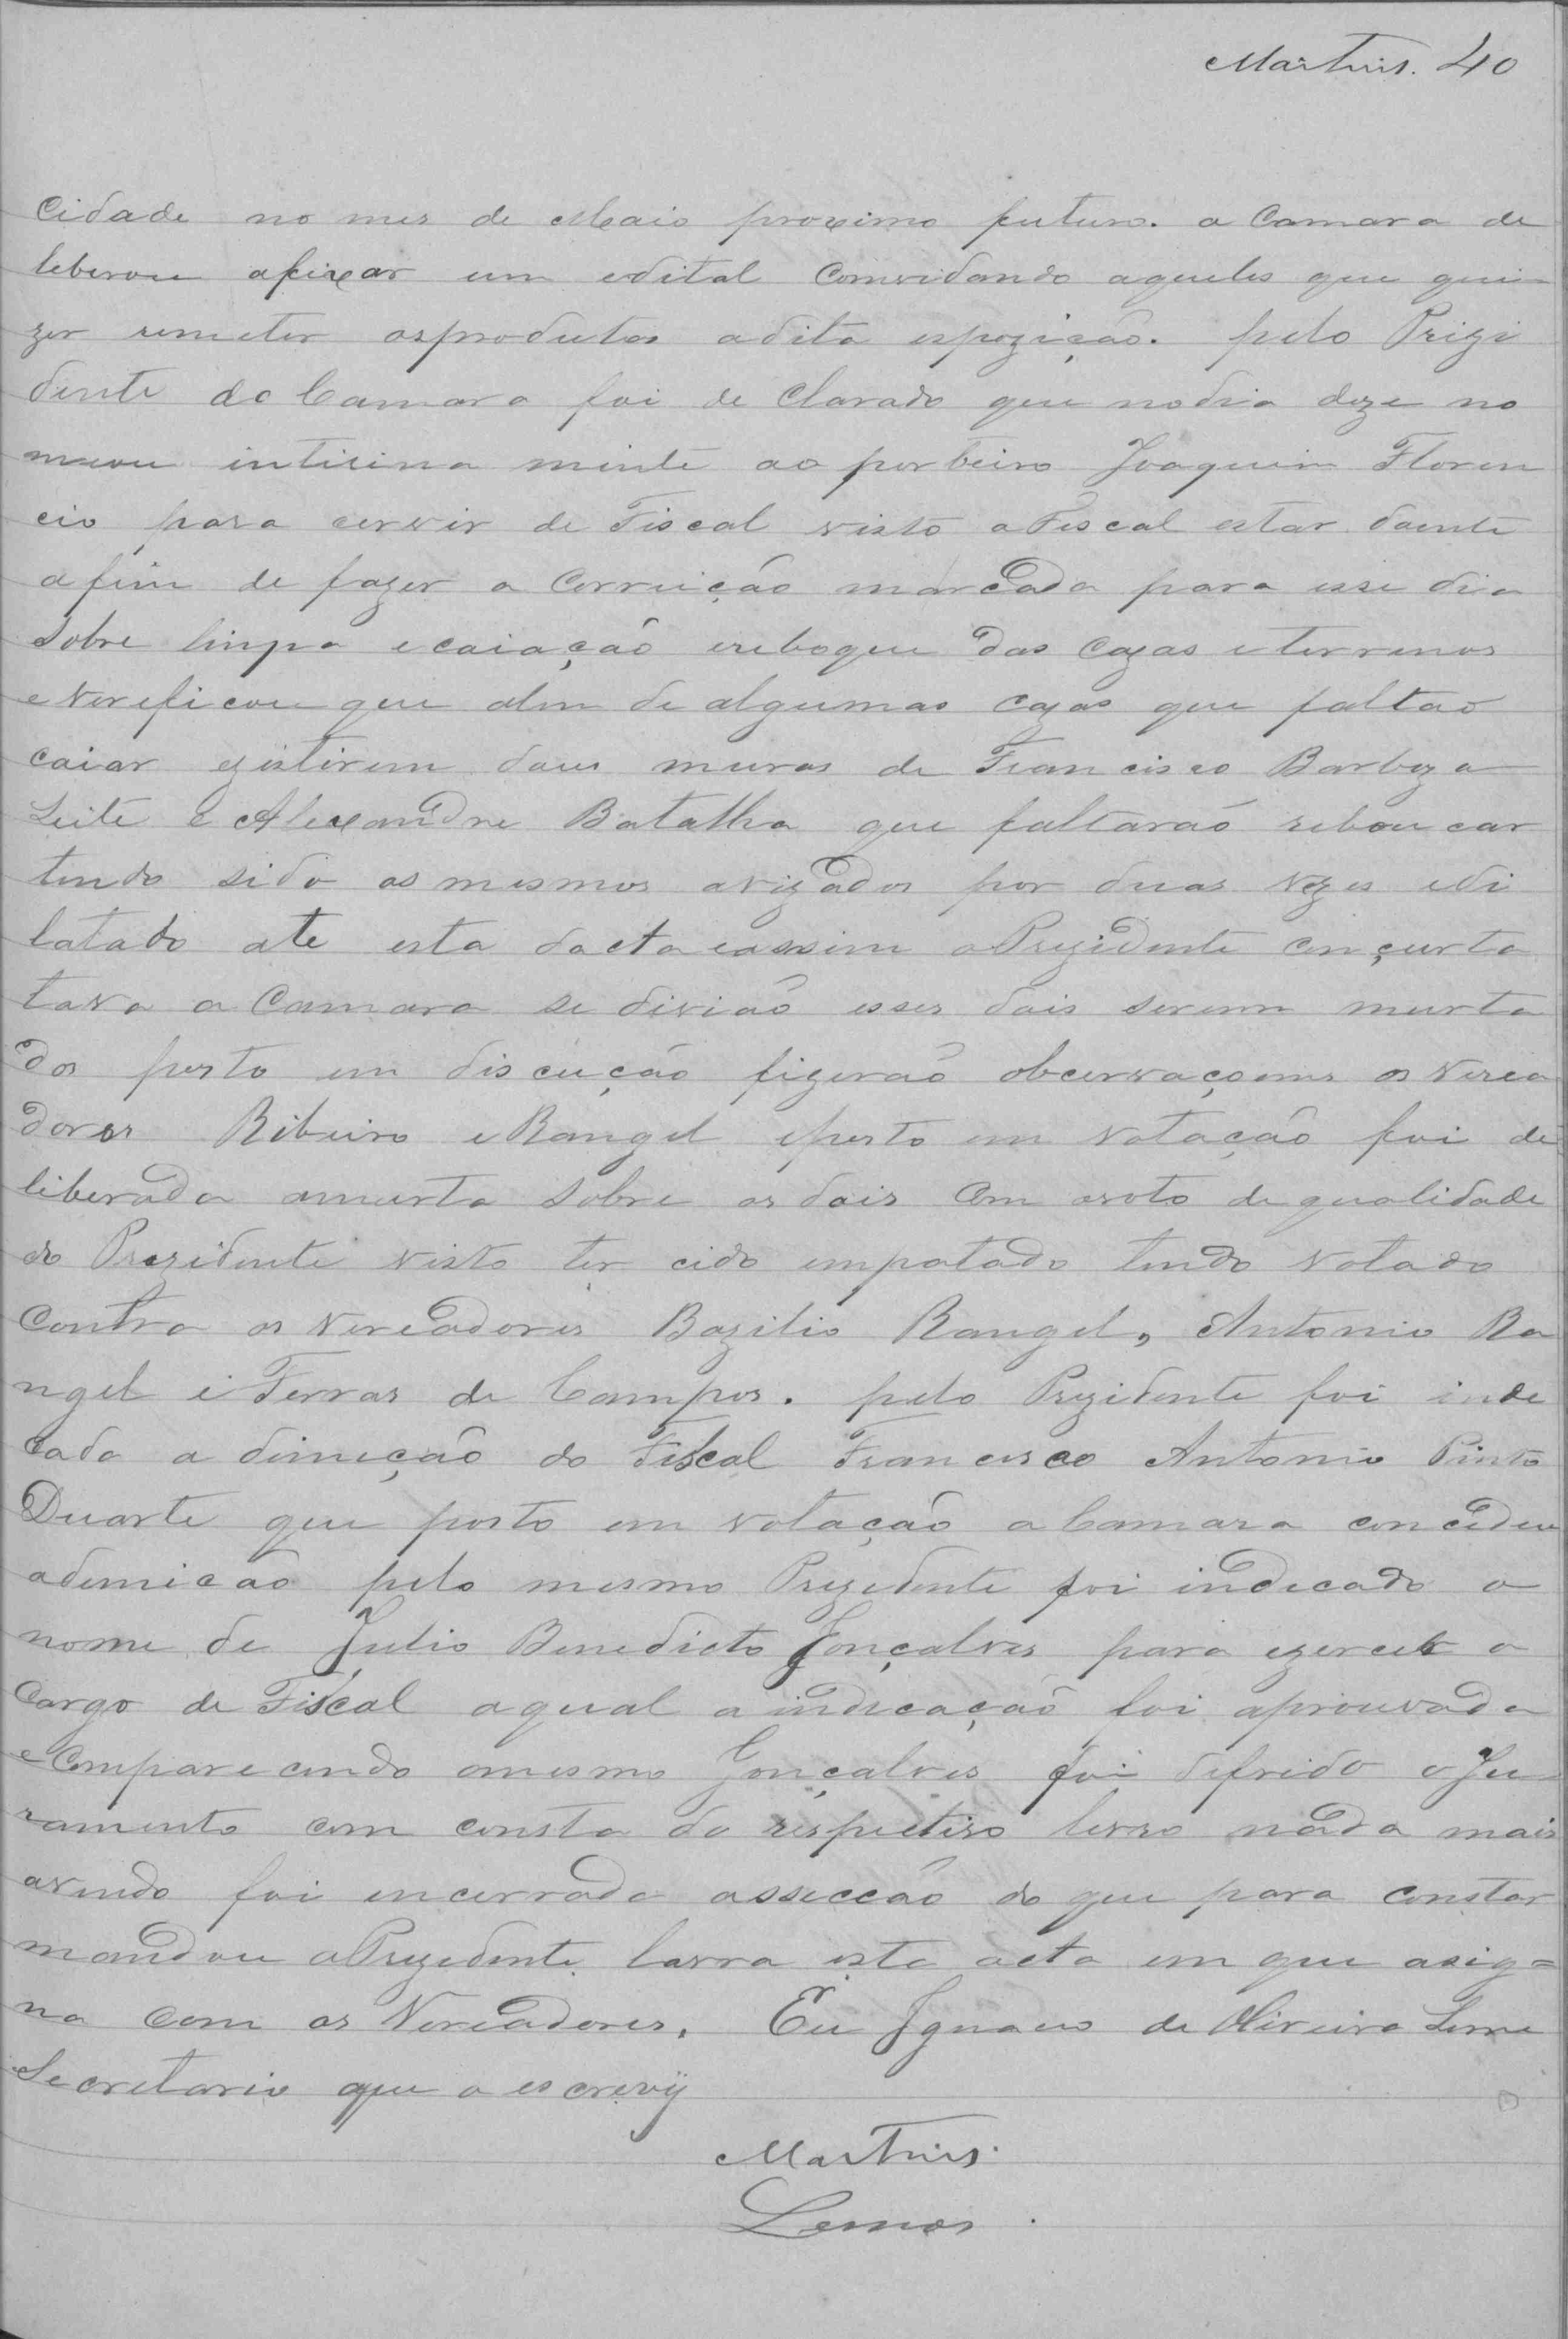 Martins. 40
Cidade no mes de Maio proximo futuro. a Camara de
liberou afixar um edital Comvidando aqueles que qui-
zer remeter osprodutos adita espozição. pelo Prizi
dente da Camara foi de Clarado que nodia doze no
meou intirina minte ao porteiro Joaquim Floren
cio para cervir de Fiscal visto o Fiscal estar doente
afim de fazer a Correição marcada para esse dia
Sobre limpa ecaiação ereboque das Cazas eterrenos
e Verificou que alem de algumas cazas que faltao
caiar ezistirem dous muros de Francisco Barboza
Leite e Alexandre Batalha que faltarão reboucar
tendo sido os mesmos avizados por duas vezes edi
latado ate esta dacta eassim o Prezidente conçurta
tava a Camara se divião esses dois serem murta
dos posto em discução fizerão obcervaçoens os Verea
dores Ribeiro e Rangel eposto em votação foi de
liberada amurta Sobre os dois Com ovoto de qualidade
do Prezidente visto ter cido empatado tendo votado
Contra os Vereadores Bazilio Rangel, Antonio Ra
ngel e Ferras de Campos. pelo Prezidente foi inde
cada a dimição do Fiscal Francisco Antonio Pinto
Duarte que posto em votação a Camara concedeu
ademicão pelo mesmo Prezedente foi indecado o
nome de Julio Benedicto Gonçalves para ezercer o
Cargo de Fiscal aqual a indecação foi aprouvada
e Comparecendo omesmo Gonçalves foi difrido o Ju
ramento com consta do respectivo livro nada mais
avendo foi encerrada assecção do que para constar
mandou o Prezedente lavra esta acta em que asig=
na com os Vereadores. Eu Ignacio de Oliveira Leme
Secretario que o escrevÿ
Martins.
Lemos.